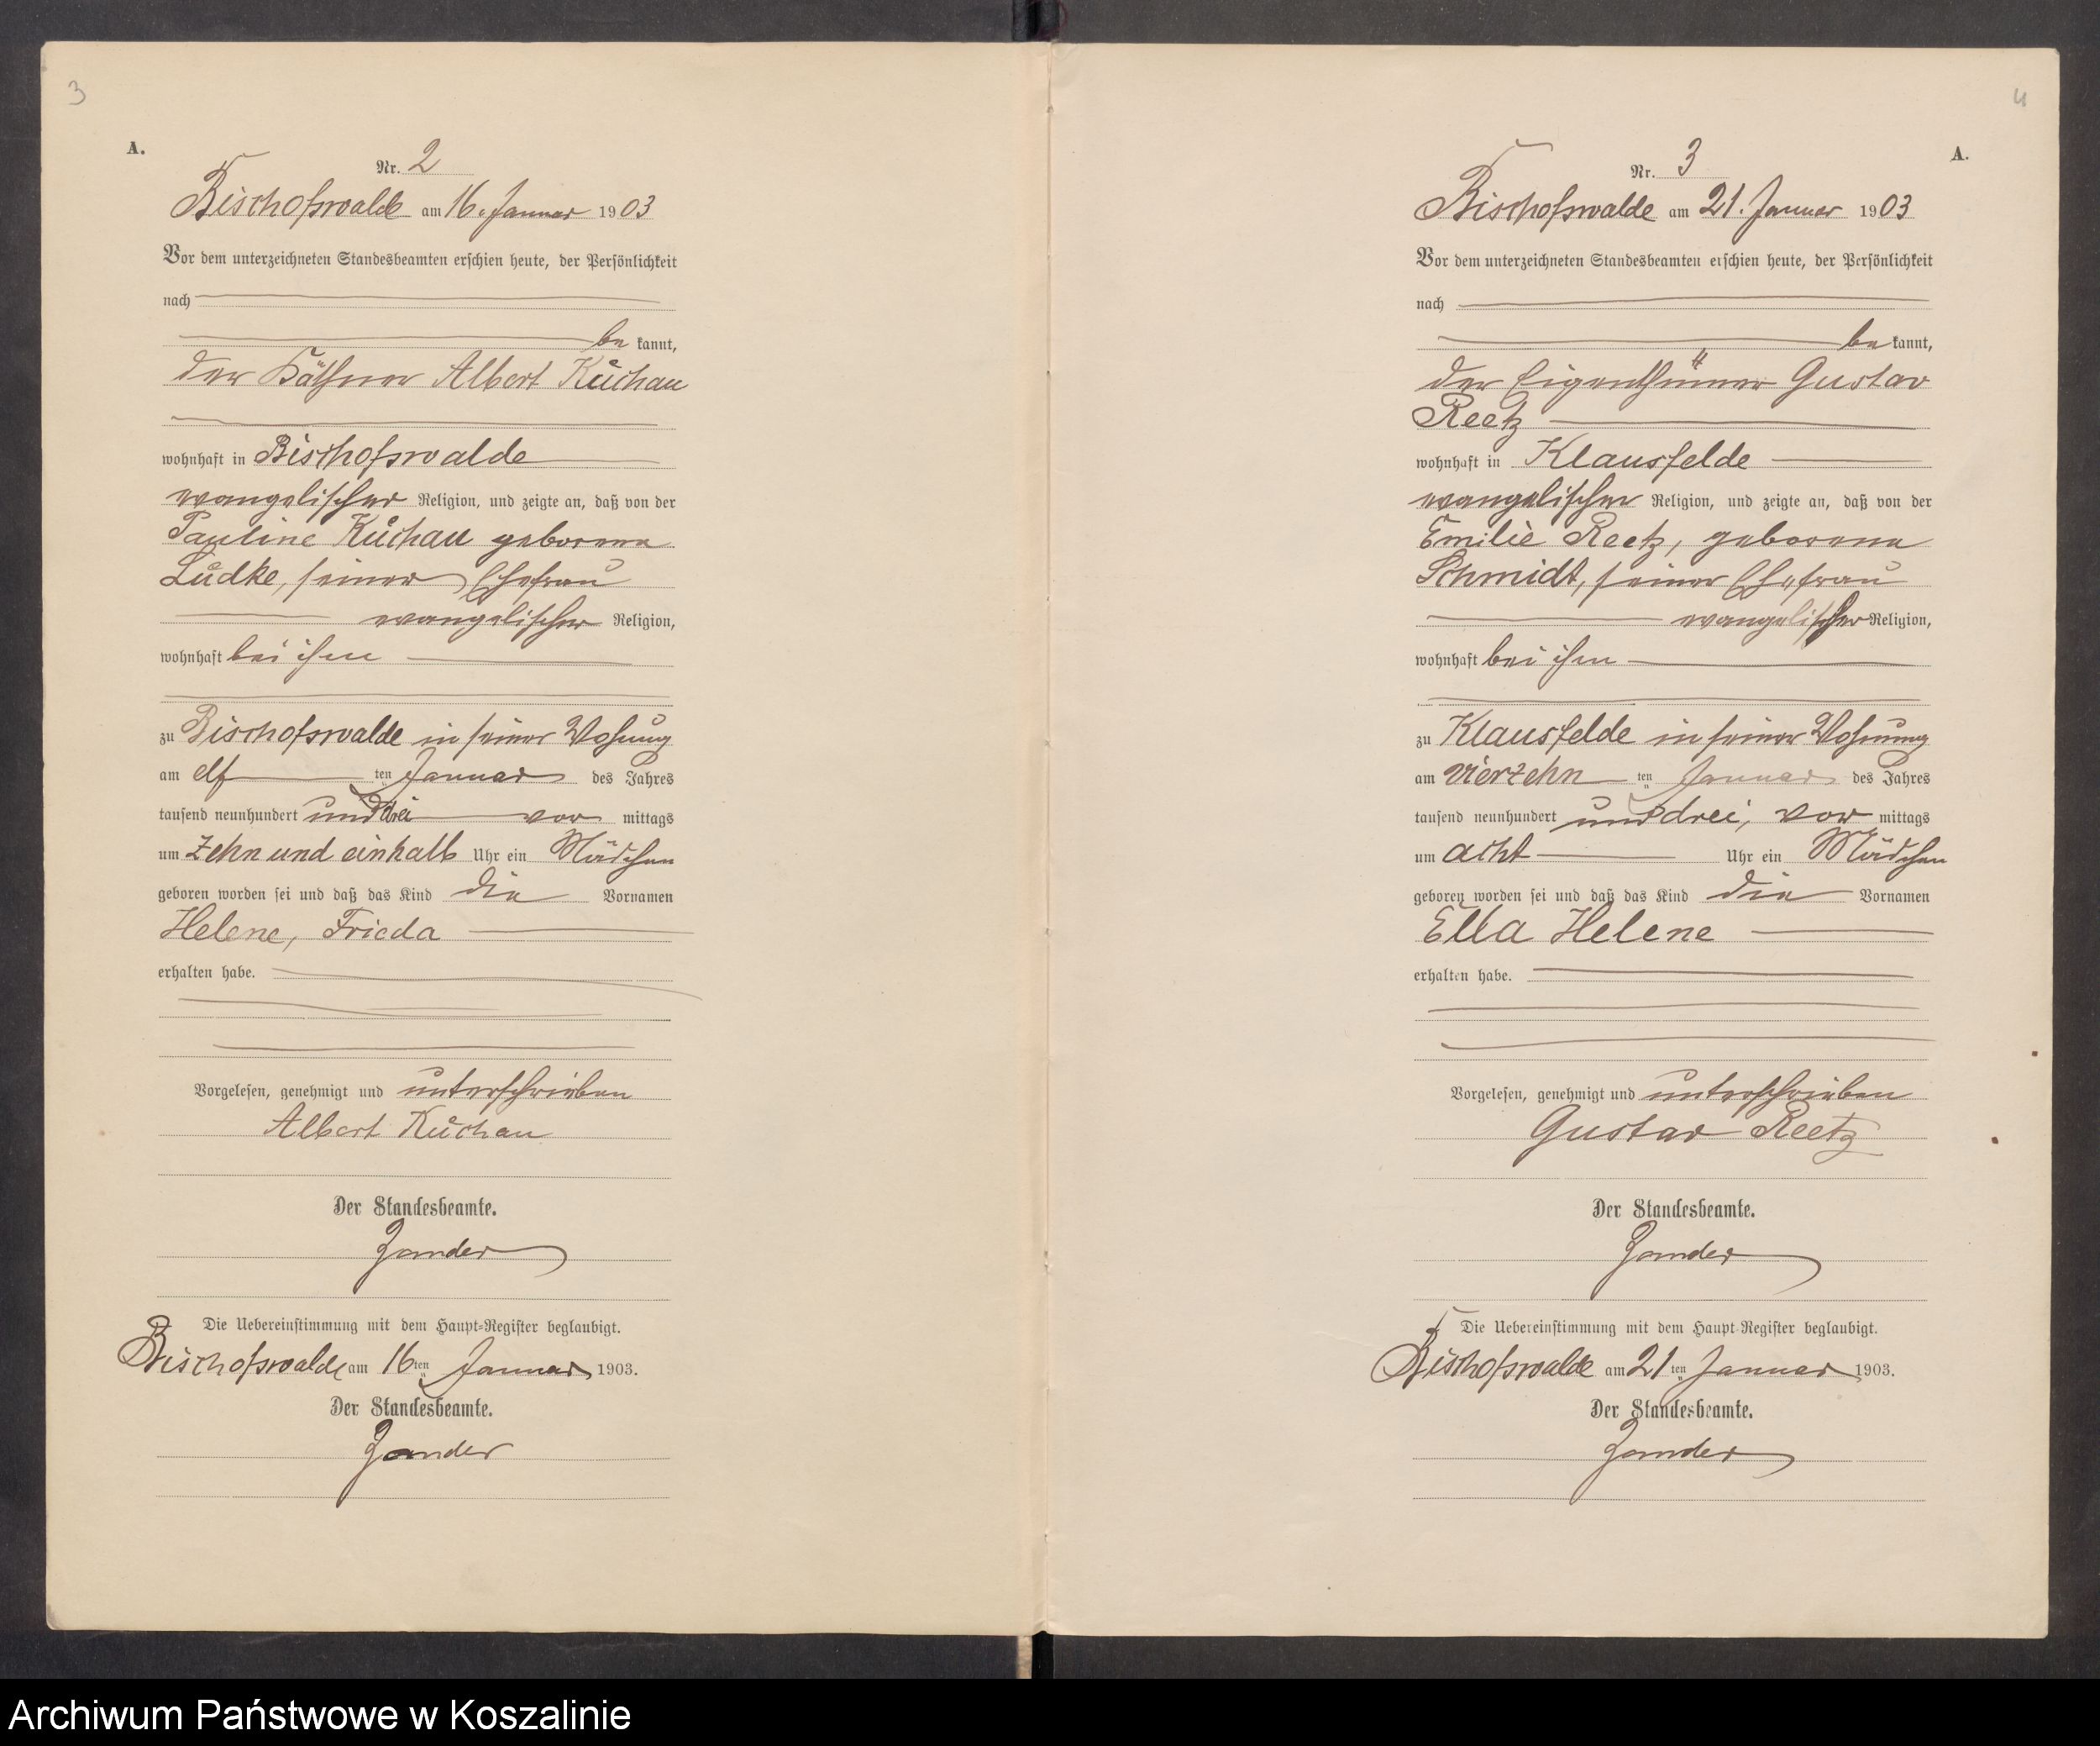 3
A.
Nr. 2
Bischofswalde am 16. Januar 1903
Vor dem unterzeichneten Standesbeamten erschien heute, der Persönlichkeit
nach
be kannt,
der Käthner Albert Kůchau
wohnhaft in Bischofswalde
evangelischer Religion, und zeigte an, daß von der
Pauline Kůchau geborene
Lůdke, seiner Ehefrau
evangelischer Religion,
wohnhaft bei ihm
zu Bischofswalde in seiner Wohnung
am elf ten Januar des Jahres
tausend neunhundert und drei vor mittags
um zehn und einhalb Uhr ein Mädchen
geboren worden sei und daß das Kind die Vornamen
Helene, Frieda
erhalten habe.
Vorgelesen, genehmigt und unterschrieben
Albert Kůchau
Der Standesbeamte.
Zander
Die Uebereinstimmung mit dem Haupt-Register beglaubigt.
Bischofswalde am 16ten Januar 1903.
Der Standesbeamte.
Zander
4
A.
Nr. 3
Bischofswalde am 21. Januar 1903
Vor dem unterzeichneten Standesbeamten erschien heute, der Persönlichkeit
nach
be kannt,
der Eigenthümer Gustav
Reetz
wohnhaft in Klausfelde
evangelischer Religion, und zeigte an, daß von der
Emilie Reetz, geborene
Schmidt, seiner Ehefrau
evangelischer Religion,
wohnhaft bei ihm
zu Klausfelde in seiner Wohnung
am vierzehn ten Januar des Jahres
tausend neunhundert und drei, vor mittags
um acht Uhr ein Mädchen
geboren worden sei und daß das Kind die Vornamen
Ella Helene
erhalten habe.
Vorgelesen, genehmigt und unterschrieben
Gustav Reetz
Der Standesbeamte.
Zander
Die Uebereinstimmung mit dem Haupt-Register beglaubigt.
Bischofswalde am 21ten Januar 1903.
Der Standesbeamte.
Zander
Archiwum Państwowe w Koszalinie